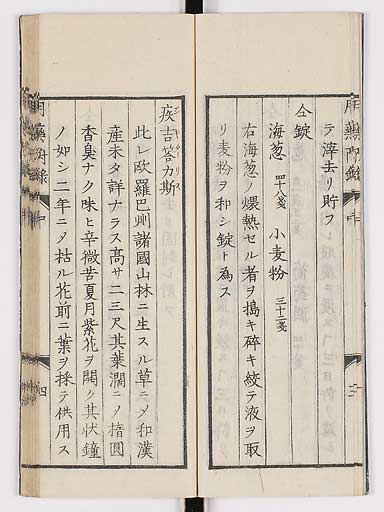 テ滓去リ貯フ
仝錠
海葱 四十八戔 小麦粉 三十二戔
右海葱ノ煨熱セル者ヲ搗キ碎キ絞テ液ヲ取
リ麦粉ヲ和シ錠ト爲ス
疾吉答力斯
此レ欧羅巴州諸國山林ニ生スル草ニメ和漢
産未タ詳ナラス高サ二三尺其葉濶ニメ楕圓
香臭ナク味ヒ辛微苦夏月紫花ヲ開ク其状鐘
ノ如シ二年ニメ枯ル花前ニ葉ヲ採テ供用ス
用藥附録 中 四